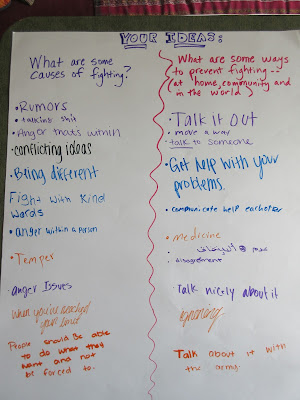 YOUR IDEAS:
What are some
causes of fighting?
• Rumors
• talking shit
• Angor thats within
• conflicting ideas
• Being different
Fight with kind
words
• anger within a person
• Temper
• anger Issues
when you've reached
your limit
People should be able
to do what they
want and not
be forced to.
What are some ways
to prevent fighting --
at home, community and
in the world?
• Talk it out
• move a way
• talk to someone
• Get help with your
problems.
• communicate help eachother
• medicine
• disagreement
• Talk nicely about it
ignoring
Talk about it with
the army.